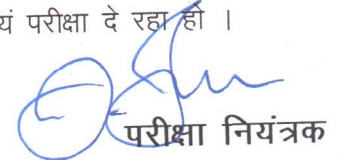 परीक्षा दे रहा हो ।
परीक्षा नियंत्रक